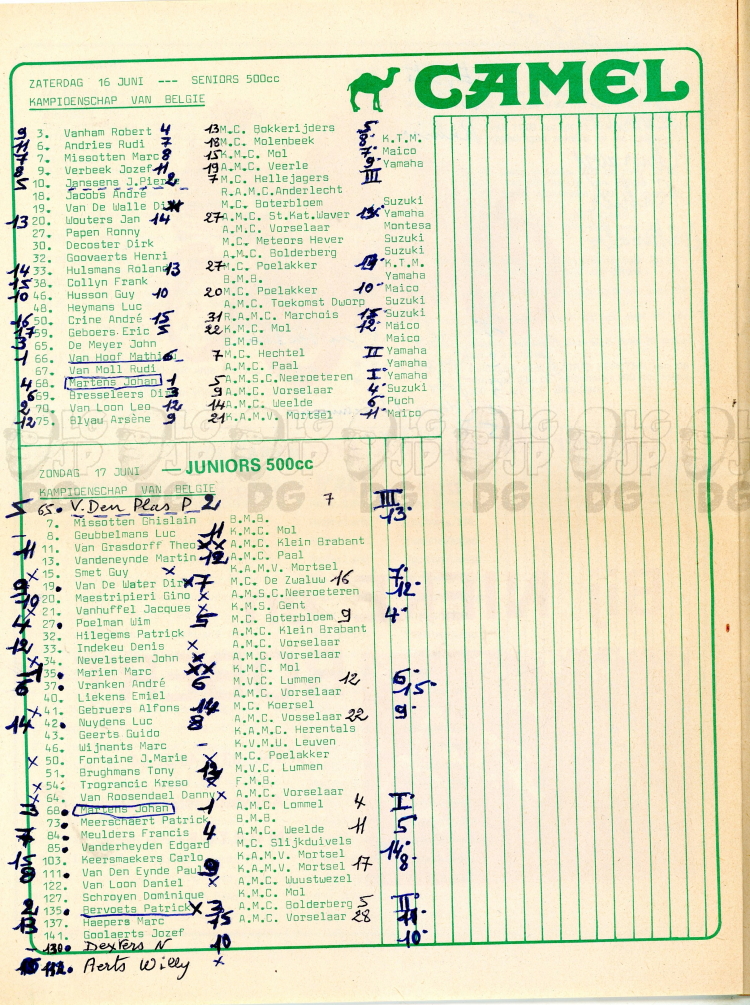 ZATERDAG 16 JUNI --- SENIORS 500cc
KAMPIOENSCHAP VAN BELGIE
CAMEL
9 3. Vanham Robert 4 13 M.C. Bokkerijders 5
11 6. Andries Rudi 7 18 M.C. Molenbeek 8 K.T.M.
6 7. Missotten Marc 8 15 K.M.C. Mol 7 Maico
8 9. Verbeek Jozef 11 19 A.M.C. Veerle 9 Yamaha
5 10. Janssens J.Pierre 2 7 M.C. Hellejagers III
18. Jacobs André R.A.M.C.Anderlecht
19. Van De Walle M.C. Boterbloem Suzuki
13 20. Wouters Jan 14 27 A.M.C. St.Kat.Waver Yamaha
27. Papen Ronny A.M.C. Vorselaar Montesa
30. Decoster Dirk M.C. Meteors Hever Suzuki
32. Goovaerts Henri A.M.C. Bolderberg Suzuki
14 33. Hulsmans Roland 13 27 M.C. Poelakker K.T.M.
15 38. Collyn Frank B.M.B. Yamaha
10 46. Husson Guy 10 20 M.C. Poelakker 10 Maico
48. Heymans Luc A.M.C. Toekomst Dworp Suzuki
16 50. Crine André 15 31 R.A.M.C. Marchois 15 Suzuki
17 59. Geboers Eric 5 22 K.M.C. Mol 12 Maico
3 65. De Meyer John B.M.B. Maico
1 66. Van Hoof Mathieu 6 7 M.C. Hechtel II Yamaha
67. Van Moll Rudi A.M.C. Paal Yamaha
4 68. Martens Johan 1 5 A.M.S.C.Neeroeteren I Yamaha
6 69. Bresseleers Dirk 3 9 A.M.C. Vorselaar 4 Suzuki
2 70. Van Loon Leo 12 14 A.M.C. Weelde 6 Puch
12 75. Blyau Arsène 9 21 K.A.M.V. Mortsel 11 Maico
ZONDAG 17 JUNI — JUNIORS 500cc
KAMPIOENSCHAP VAN BELGIE
5 65. V.Den Plas P 2 7 III
7. Missotten Ghislain B.M.B. 13
8. Geubbelmans Luc 11 K.M.C. Mol
11 11. Van Grasdorff Theo XX A.M.C. Klein Brabant
13. Vandeneynde Martin 12 A.M.C. Paal
x 15. Smet Guy x K.A.M.V. Mortsel
9 19. Van De Water Dirk 7 M.C. De Zwaluw 16 7
20. Maestripieri Gino x A.M.S.C.Neeroeteren 12
x 21. Vanhuffel Jacques x K.M.S. Gent
4 27. Poelman Wim 5 M.C. Boterbloem 9 4
32. Hilegems Patrick A.M.C. Klein Brabant
12 33. Indekeu Denis x A.M.C. Vorselaar
x 34. Nevelsteen John x A.M.G. Vorselaar
35. Marien Marc XX K.M.C. Mol
6 37. Vranken André 6 M.V.C. Lummen 12 6
40. Liekens Emiel A.M.C. Vorselaar 15
x 41. Gebruers Alfons 14 M.C. Koersel
14 42. Nuydens Luc 8 A.M.C. Vosselaar 22 9
43. Geerts Guido K.A.M.C. Herentals
46. Wijnants Marc - K.V.M.U. Leuven
x 50. Fontaine J.Marie x M.C. Poelakker
51. Brughmans Tony M.V.C. Lummen
x 54. Trograncic Kreso x F.M.B.
x 64. Van Roosendael Danny x A.M.C. Vorselaar
68. Martens Johan 1 A.M.C. Lommel 4 I
73. Meerschaert Patrick B.M.B.
84. Meulders Francis 4 A.M.C. Weelde 11 5
85. Vanderheyden Edgard M.C. Slijkduivels
15 103. Keersmaekers Carlo K.A.M.V. Mortsel 14
8 111. Van Den Eynde Paul 9 K.A.M.V. Mortsel 17 8
122. Van Loon Daniel x A.M.C. Wuustwezel
127. Schroyen Dominique K.M.C. Mol
2 135. Bervoets Patrick x 3 A.M.C. Bolderberg 5 II
13 137. Haepers Marc 15 A.M.C. Vorselaar 28 11
141. Goolaerts Jozef 10
- 130. Dexters N 10
112. Aerts Willy x